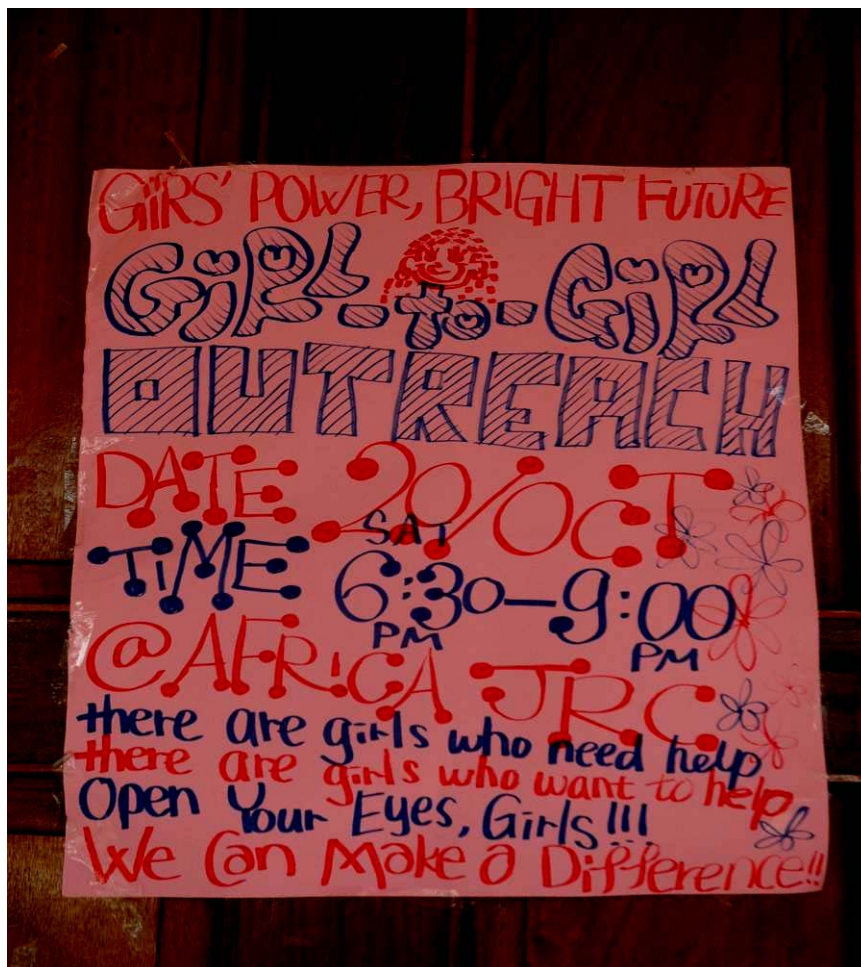 GiRlS' POWER, BRIGHT FUTURE
GiRL-to-GiRL
OUTREACH
DATE 20/OCT
SAT
TiME 6:30-9:00
PM PM
@AFRiCA JRC
there are girls who need help
there are girls who want to help
Open Your Eyes, Girls!!!
We Can Make a Difference!!